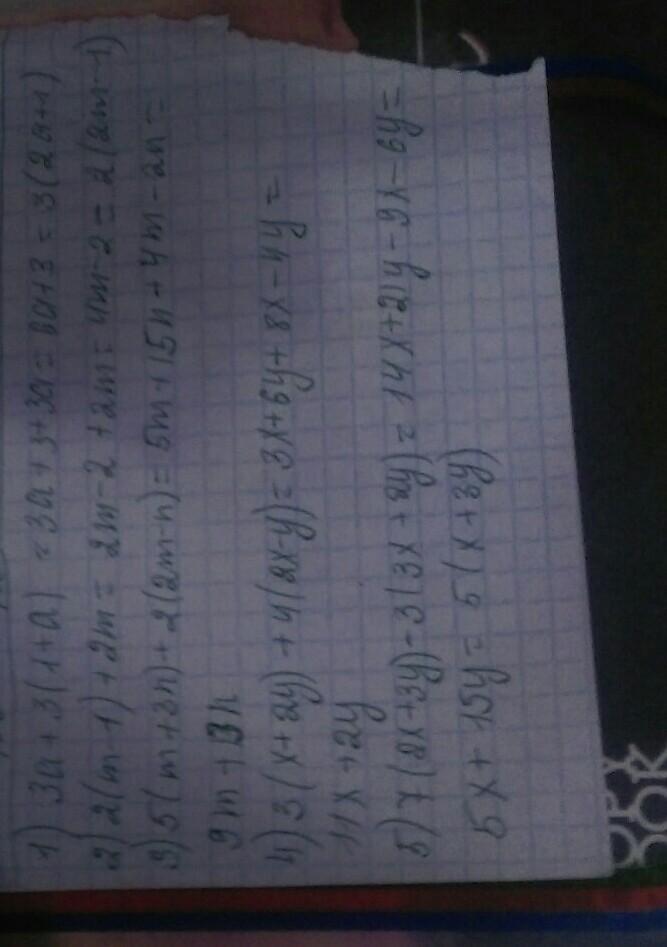 1) 3a + 3(1+a) = 3a+3+3a = 6a+3 = 3(2a+1)
2) 2(m-1)+2m = 2m-2+2m = 4m-2 = 2(2m-1)
3) 5(m+3n)+2(2m-n) = 5m+15n+4m-2n =
9m+13n
4) 3(x+2y)+4(2x-y) = 3x+6y+8x-4y =
11x+2y
5) 7(2x+3y)-3(3x+2y) = 14x+21y-9x-6y =
5x+15y = 5(x+3y)